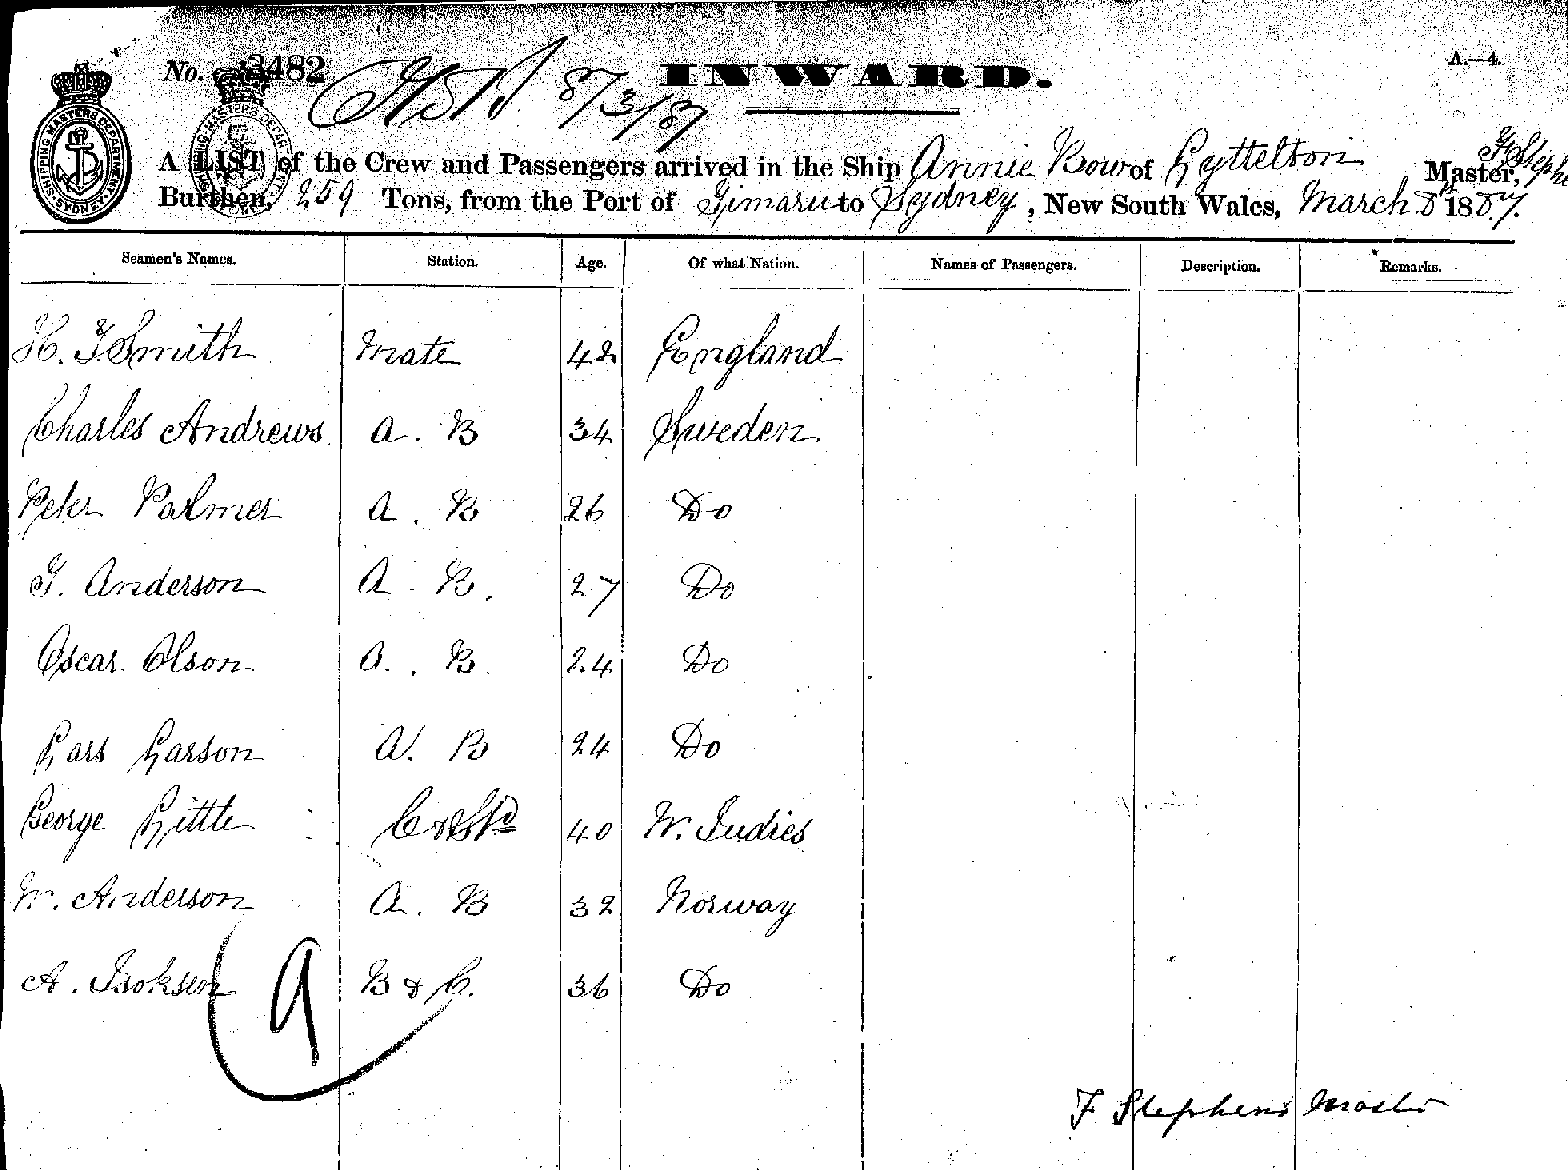 No. 3482 INWARD. A.—4.
8/3/87
SHIPPING MASTERS DEPARTMENT SYDNEY
A LIST of the Crew and Passengers arrived in the Ship Annie Bow of Lyttelton Master, F Stephe
Burthen, 259 Tons, from the Port of Timaru to Sydney, New South Wales, March 8th 1887.
Seamen's Names. Station. Age. Of what Nation. Names of Passengers. Description. Remarks.
H. J Smith Mate 42 England
Charles Andrews A. B 34 Sweden
Peter Palmer A. B 26 Do
G. Anderson A. B. 27 Do
Oscar Olson A. B 24 Do
Lars Larson A. B 24 Do
George Little C & Std 40 W. Indies
W. Anderson A. B 32 Norway
A. Isoksen B & C. 36 Do
9
F Stephens Master